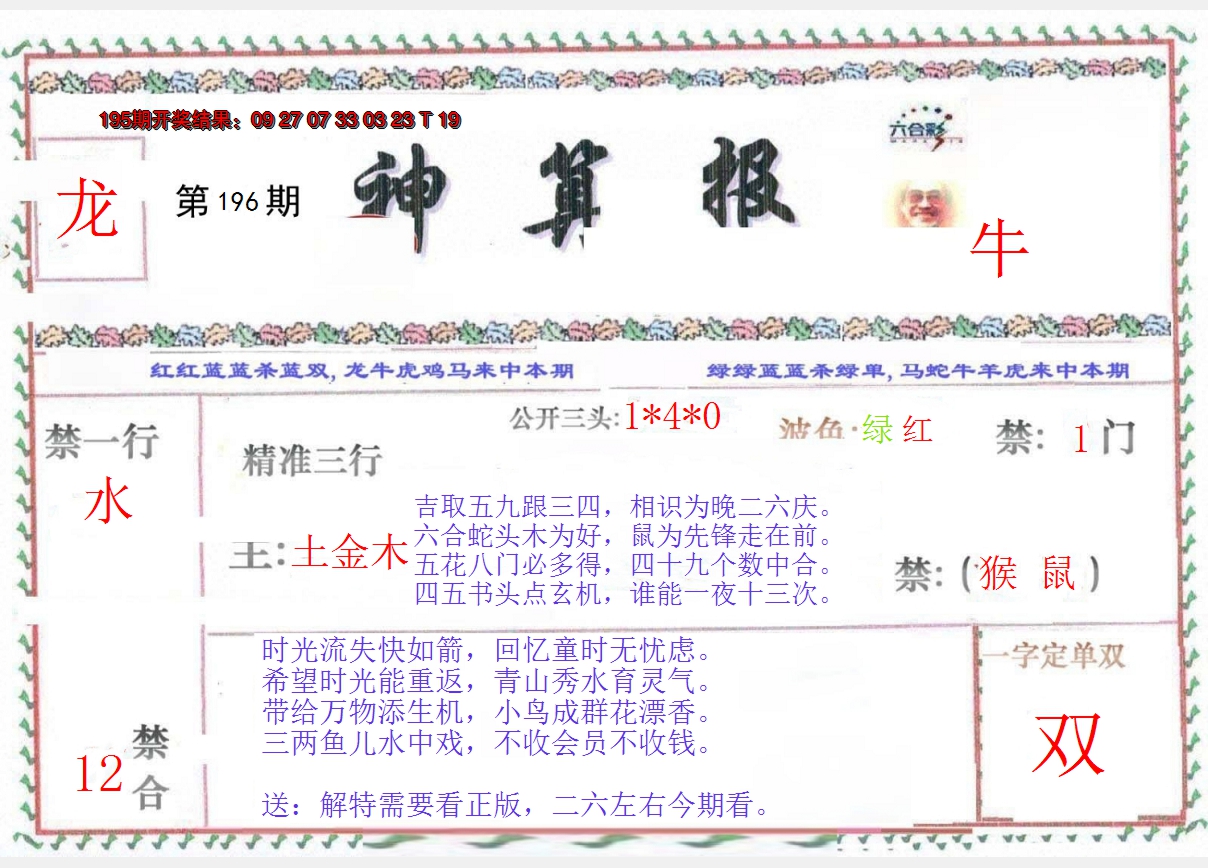 195期开奖结果：09 27 07 33 03 23 T 19
六合彩
龙
第196期
神算报
牛
红红蓝蓝杀蓝双,龙牛虎鸡马来中本期
绿绿蓝蓝杀绿单,马蛇牛羊虎来中本期
公开三头:1*4*0
波色·绿 红
禁：1门
禁一行
水
精准三行
主:土金木
吉取五九跟三四，相识为晚二六庆。
六合蛇头木为好，鼠为先锋走在前。
五花八门必多得，四十九个数中合。
四五书头点玄机，谁能一夜十三次。
禁:(猴 鼠)
时光流失快如箭，回忆童时无忧虑。
希望时光能重返，青山秀水育灵气。
带给万物添生机，小鸟成群花漂香。
三两鱼儿水中戏，不收会员不收钱。
送：解特需要看正版，二六左右今期看。
12
禁合
一字定单双
双